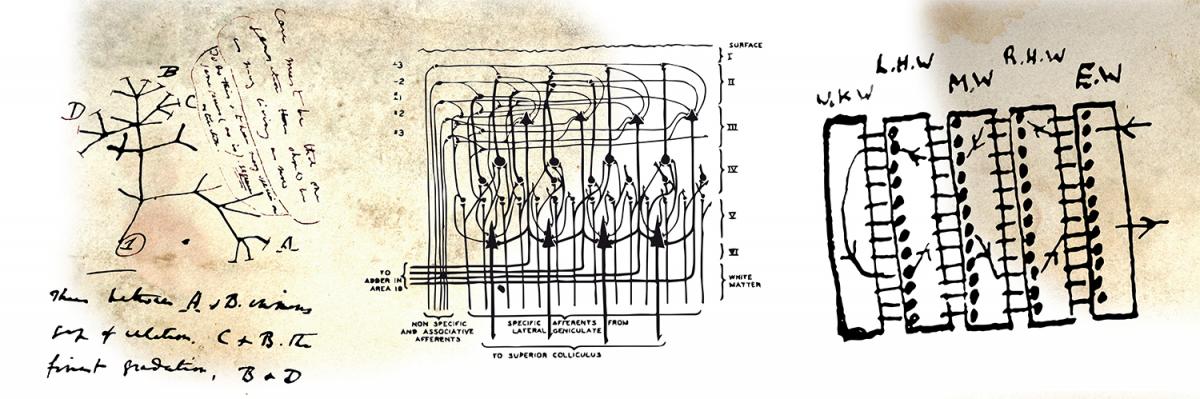 Case must be that one
generation then should be
as many living as now
To do this & to have many species in
same genus (as is) requires
extinction
B
D
C
A
1
Thus between A & B. immense
gap of relation. C & B. the
finest gradation, B & D
SURFACE
I
II
III
IV
V
VI
WHITE
MATTER
TO
ADDER IN
AREA 18
NON SPECIFIC
AND ASSOCIATIVE
AFFERENTS
SPECIFIC AFFERENTS FROM
LATERAL GENICULATE
TO SUPERIOR COLLICULUS
U.K.W
L.H.W
M.W
R.H.W
E.W